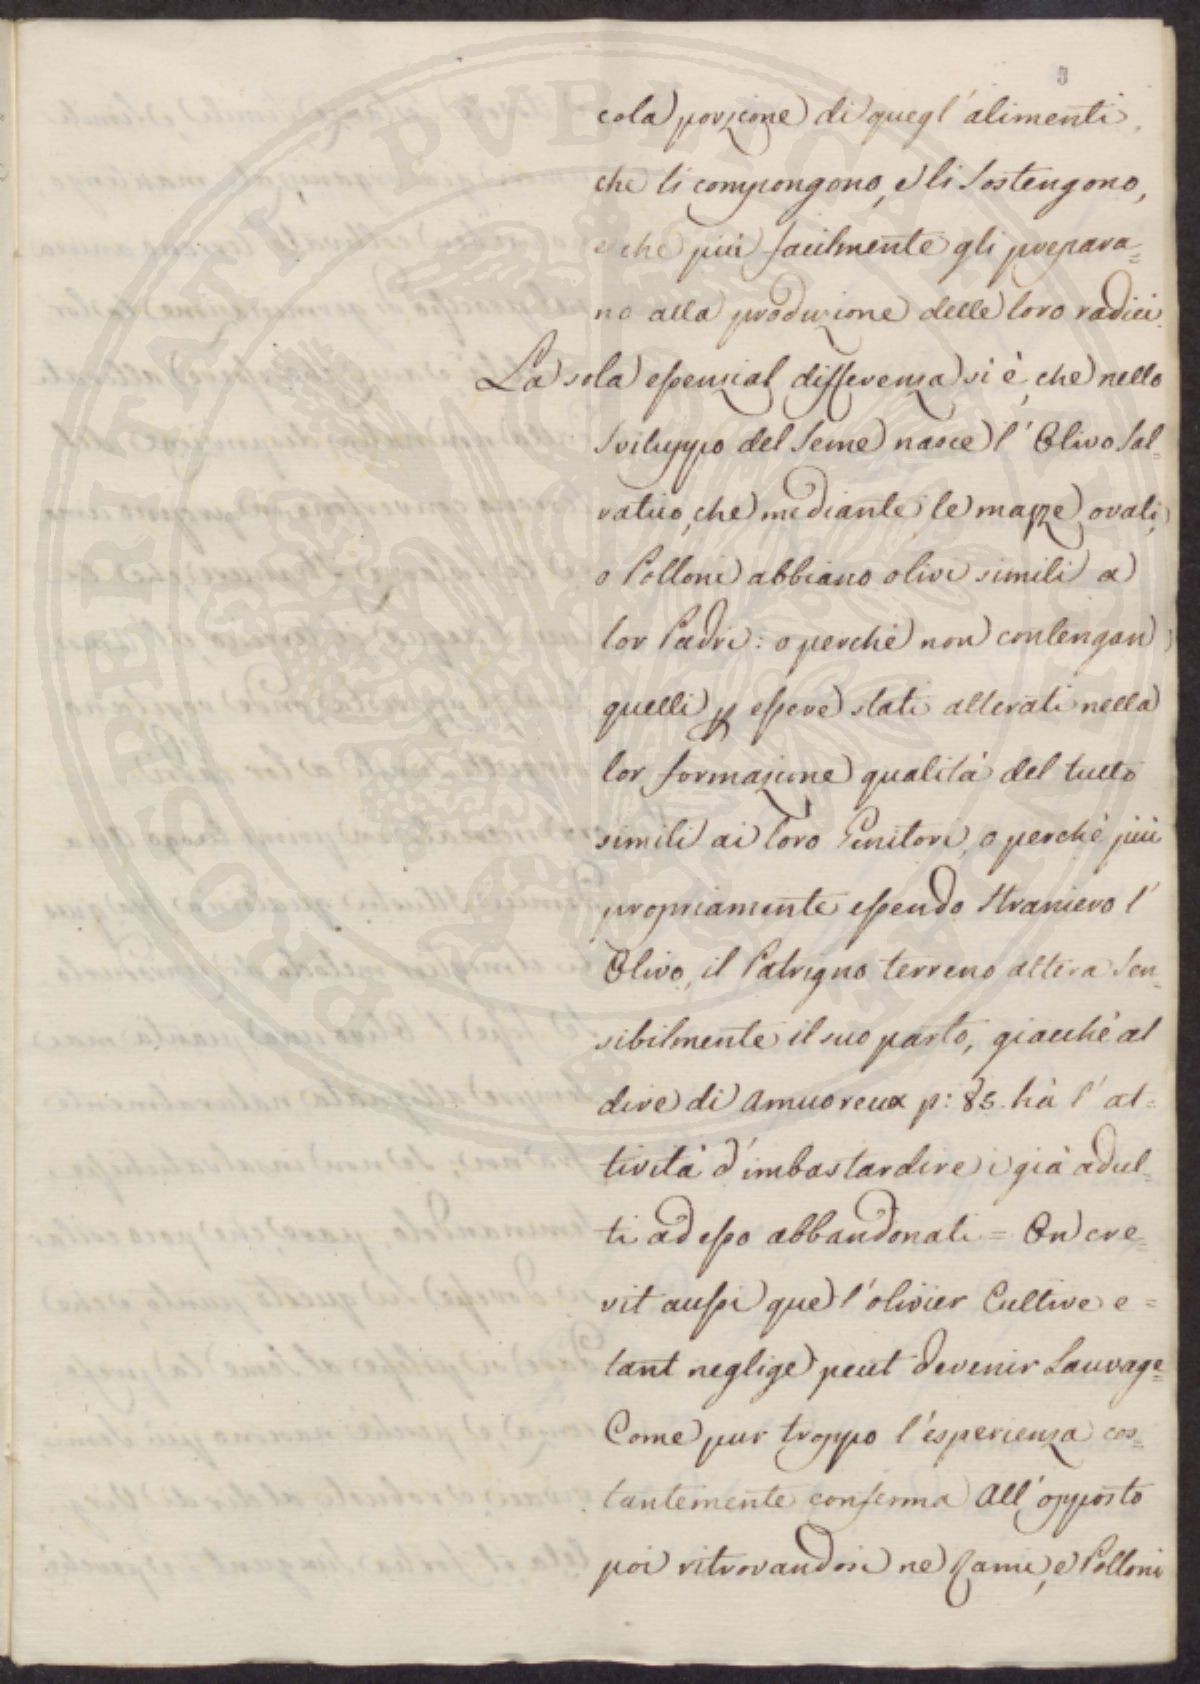 cola porzione di quegl' alimenti,
che li compongono, e li sostengono,
e che più facilmente gli prepara=
no alla produzione delle loro radici.
La sola essenzial differenza si è, che nello
sviluppo del seme nasce l' Olivo sal=
vatico, che mediante le mazze, ovali,
o Polloni abbiano olivi simili a
lor Padri: o perchè non contengan
quelli p essere stati alterati nella
lor formazione qualità del tutto
simili ai loro Genitori, o perchè più
propriamente essendo straniero l'
Olivo, il Patrigno terreno altera sen=
sibilmente il suo parto, giacchè al
dire di Amuoreux p: 85. hà l' at=
tività d'imbastardire i già adul=
ti ad esso abbandonati = On cre=
vit aussi que l'olivier Cultive e=
tant neglige peut devenir Sauvage=
Come pur troppo l'esperienza cos=
tantemente conferma All' opposto
poi ritrovandosi ne Rami, e Polloni
PERINATI PVBLICA